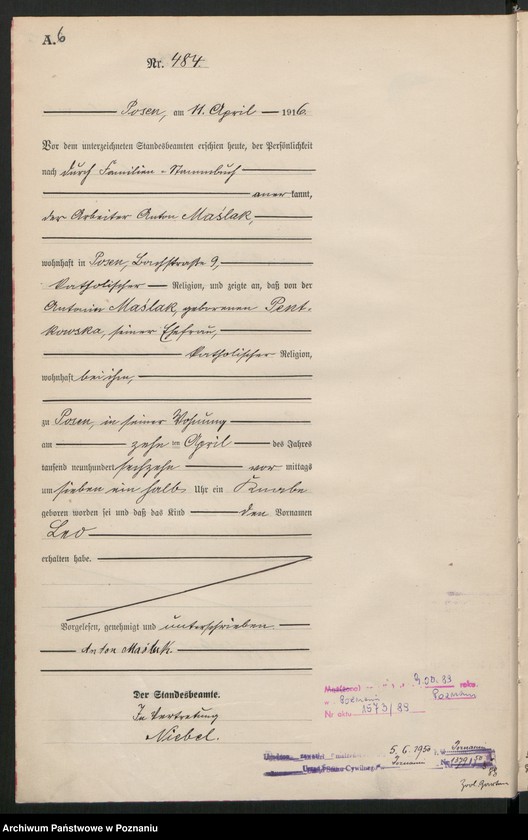 A. 6
Nr. 484.
Posen, am 11. April 1916.
Vor dem unterzeichneten Standesbeamten erschien heute, der Persönlichkeit
nach durch Familien-Stammbuch
anerkannt,
der Arbeiter Anton Maślak,
wohnhaft in Posen, Bachstraße 9,
katholischer Religion, und zeigte an, daß von der
Antonin Maślak, geborenen Pent-
kowska, seiner Ehefrau,
katholischer Religion,
wohnhaft bei ihm,
zu Posen, in seiner Wohnung
am zehn ten April des Jahres
tausend neunhundert sechzehn vormittags
um sieben ein halb Uhr ein Knabe
geboren worden sei und daß das Kind den Vornamen
Leo
erhalten habe.
Vorgelesen, genehmigt und unterschrieben
Anton Maślak.
Der Standesbeamte.
In Vertretung
Niebel.
83 roku
Poznań
Nr aktu 1573/83
5. 6. 1950
Poznaniu
Urząd Stanu Cywilnego
Archiwum Państwowe w Poznaniu